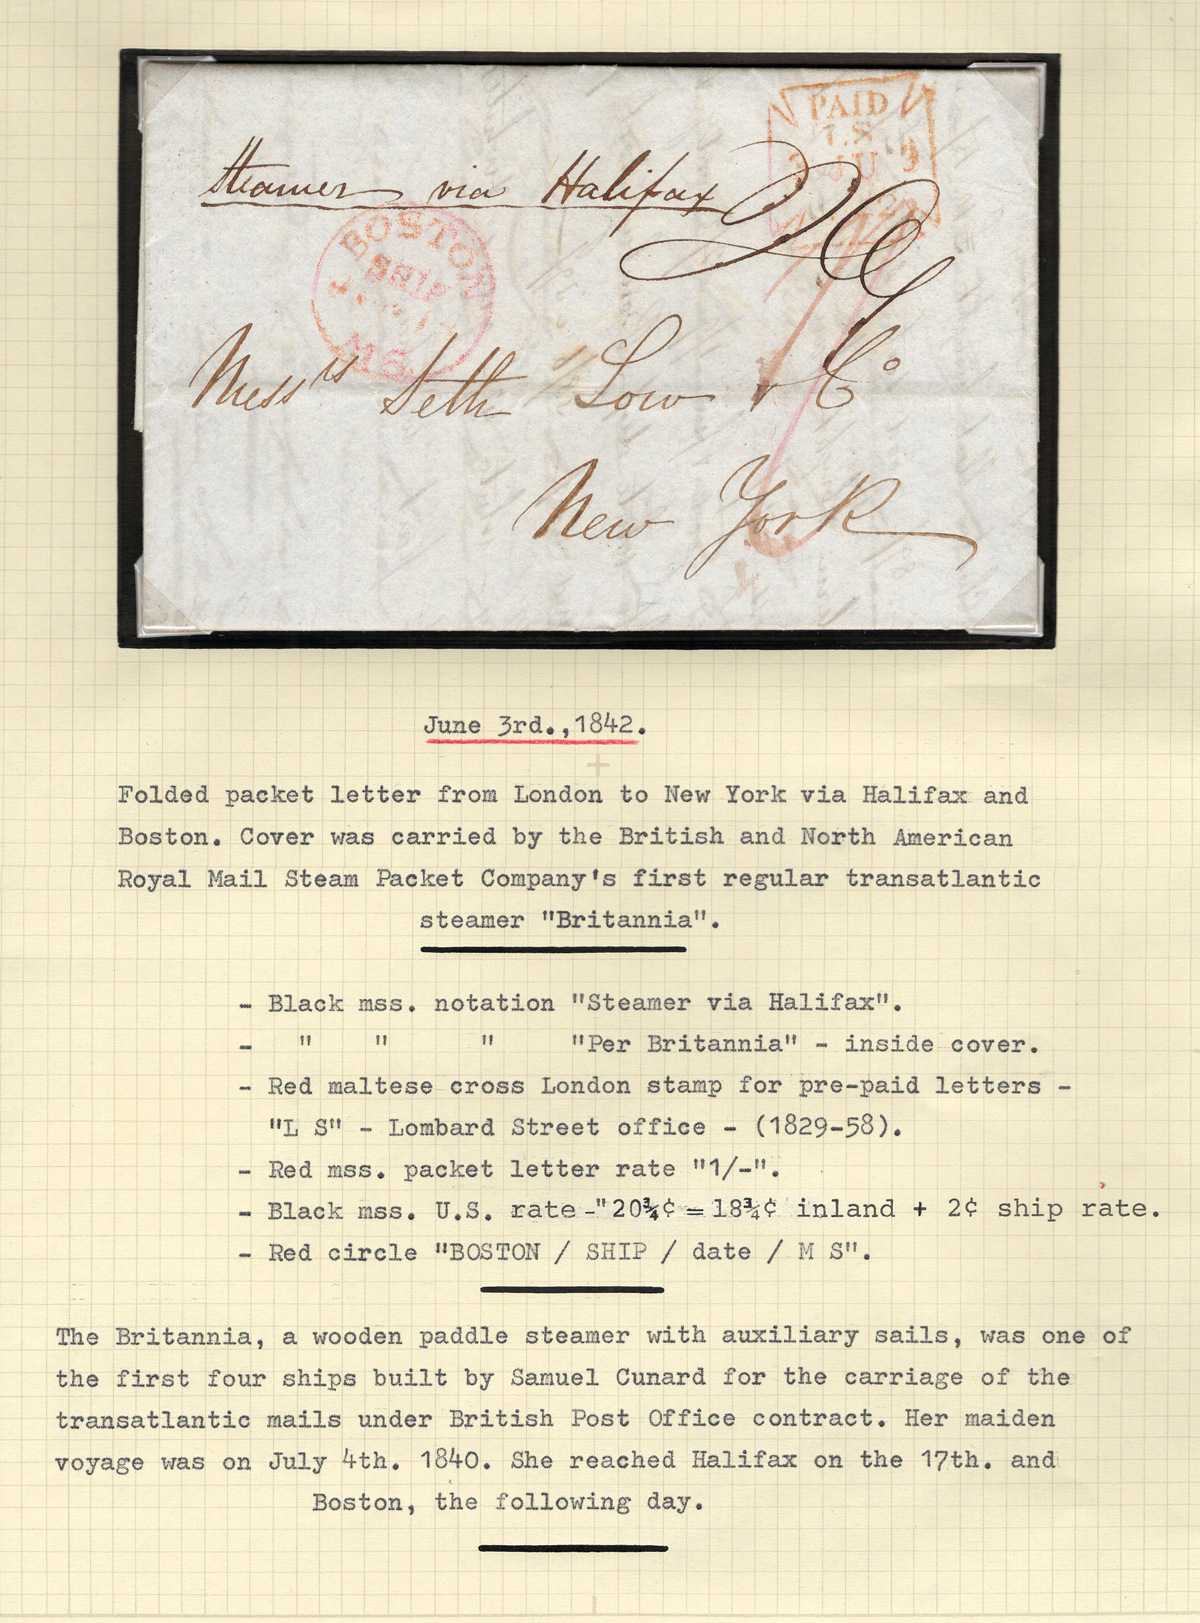 PAID
L.S
Steamer via Halifax
BOSTON
SHIP
MS
Messrs Seth Low & Co
New York
June 3rd.,1842.
Folded packet letter from London to New York via Halifax and
Boston. Cover was carried by the British and North American
Royal Mail Steam Packet Company's first regular transatlantic
steamer "Britannia".
- Black mss. notation "Steamer via Halifax".
- " " " "Per Britannia" - inside cover.
- Red maltese cross London stamp for pre-paid letters -
"L S" - Lombard Street office - (1829-58).
- Red mss. packet letter rate "1/-".
- Black mss. U.S. rate -"20¾¢ = 18¾¢ inland + 2¢ ship rate.
- Red circle "BOSTON / SHIP / date / M S".
The Britannia, a wooden paddle steamer with auxiliary sails, was one of
the first four ships built by Samuel Cunard for the carriage of the
transatlantic mails under British Post Office contract. Her maiden
voyage was on July 4th. 1840. She reached Halifax on the 17th. and
Boston, the following day.